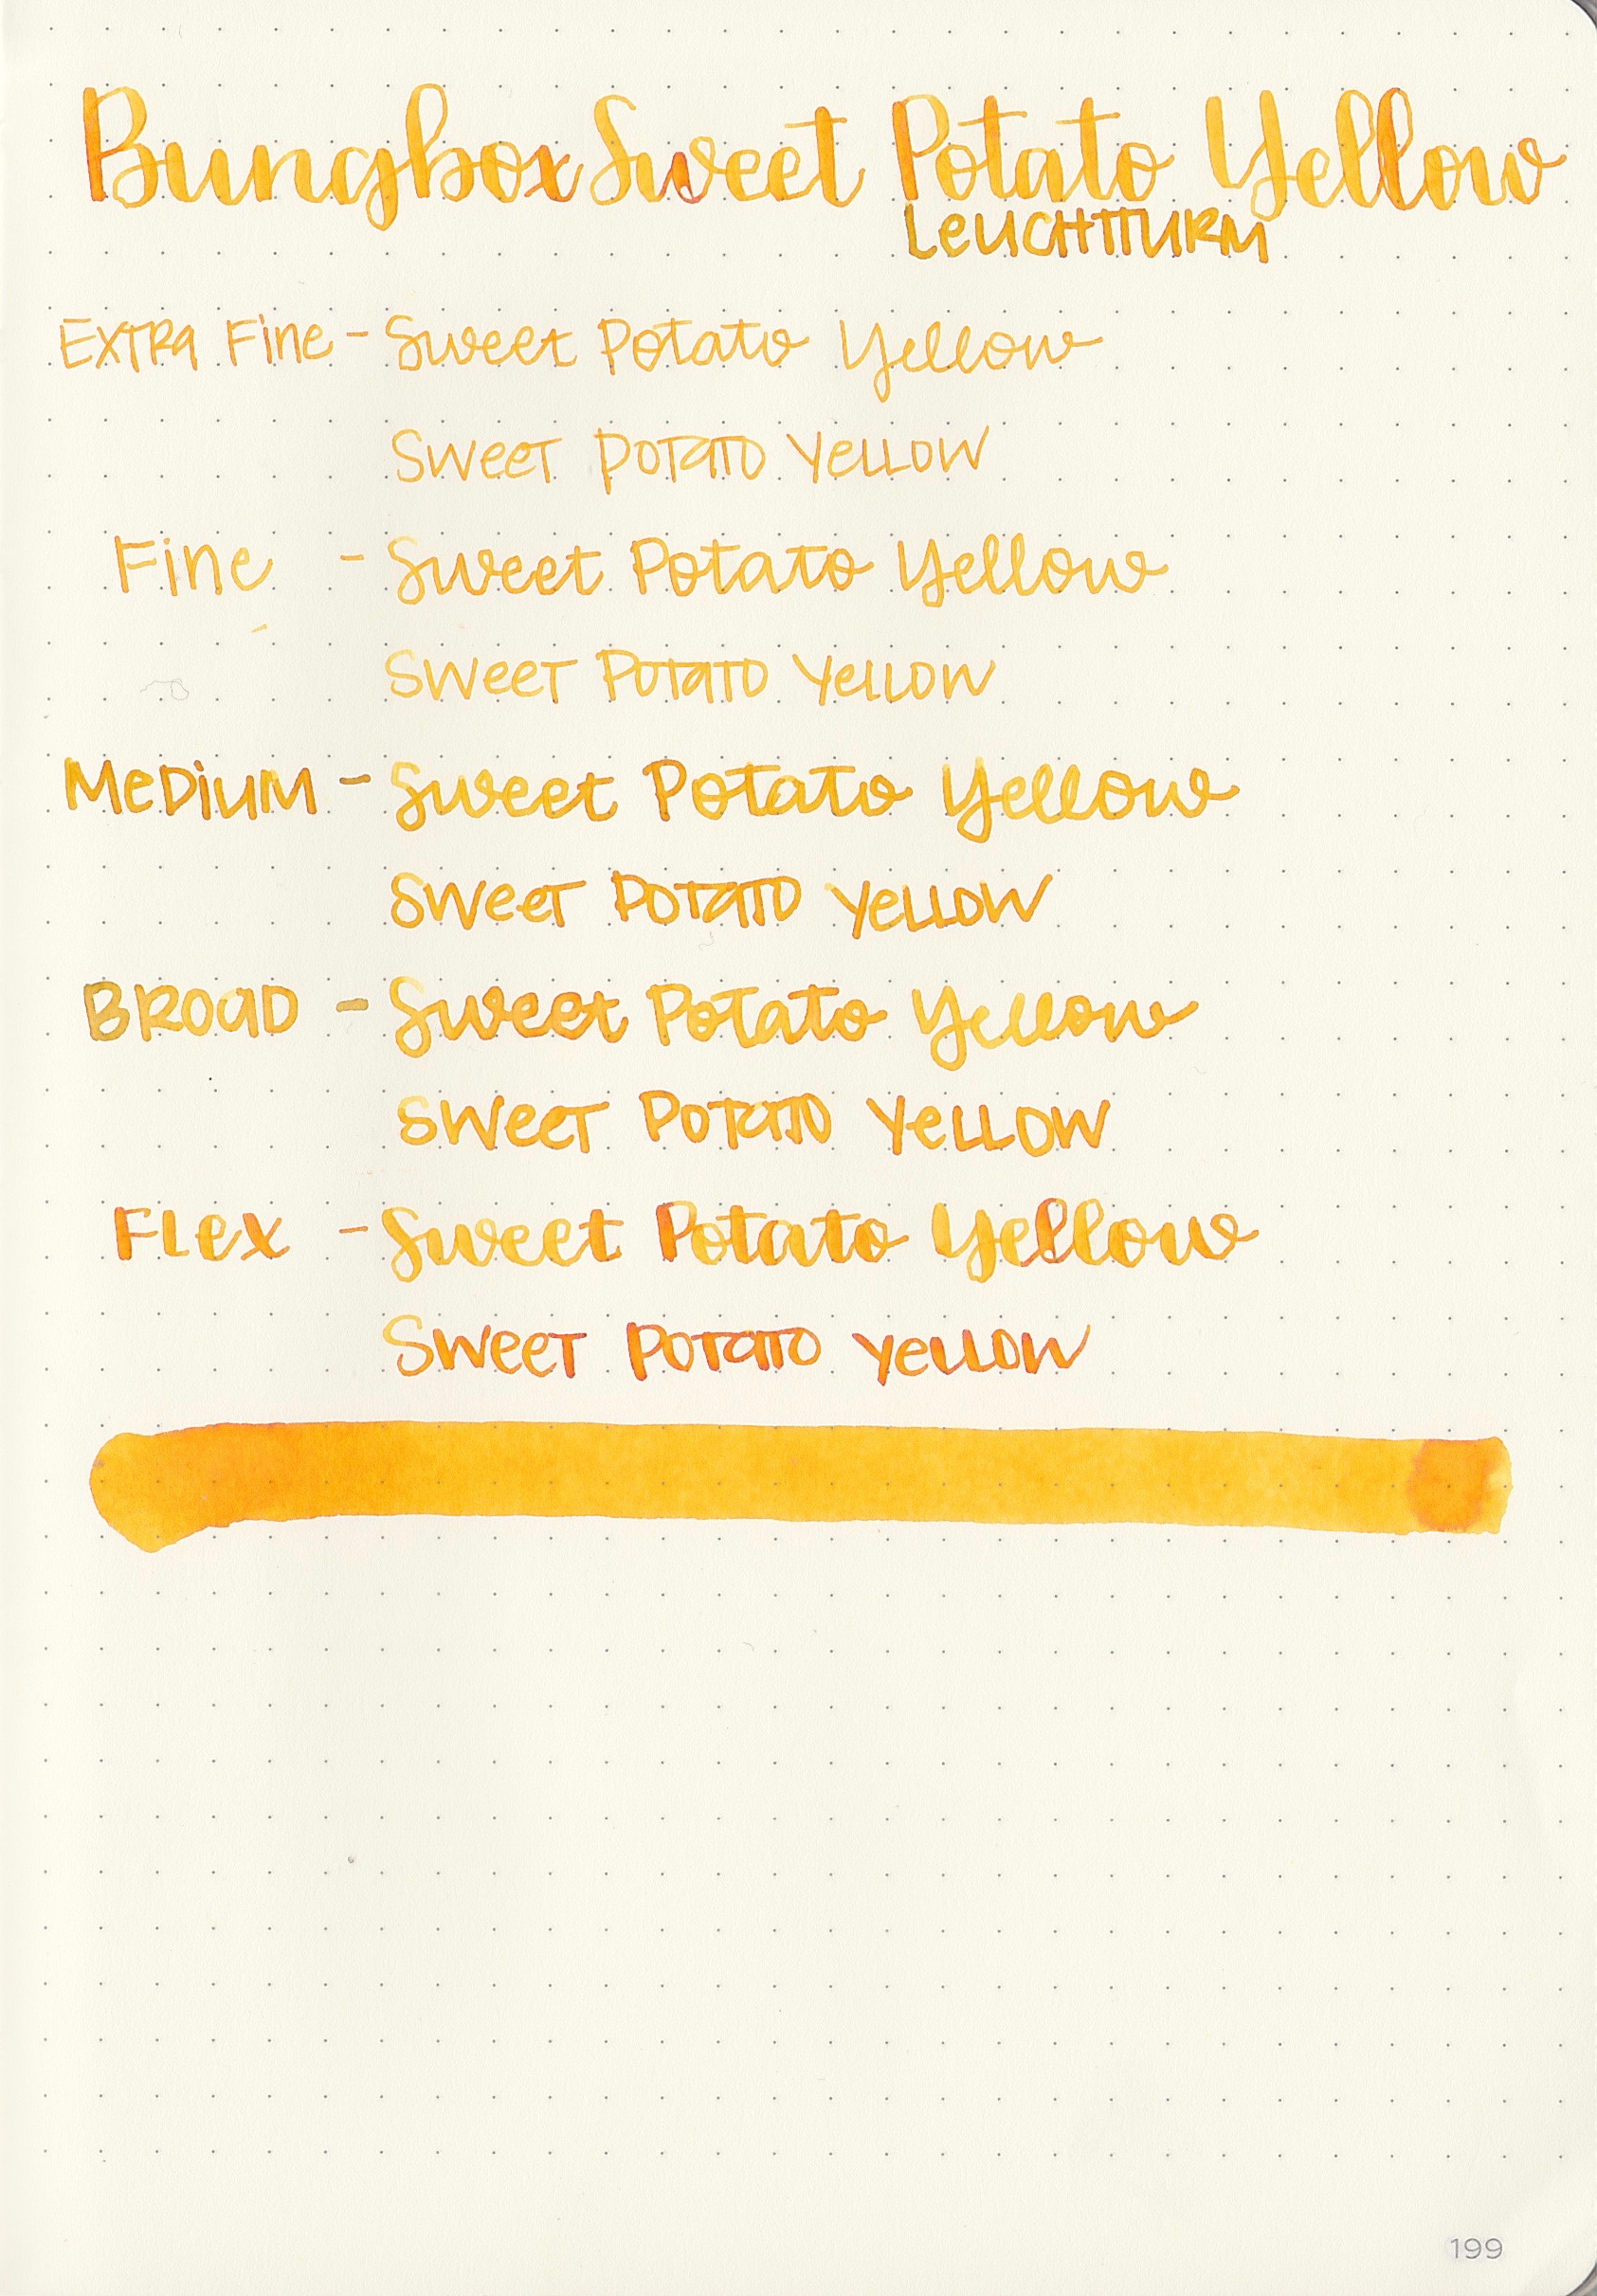 Bungbox Sweet Potato Yellow
LEUCHTTURM
Extra Fine - Sweet Potato Yellow
Sweet Potato Yellow
Fine - Sweet Potato Yellow
Sweet Potato Yellow
Medium - Sweet Potato Yellow
Sweet Potato Yellow
Broad - Sweet Potato Yellow
Sweet Potato Yellow
Flex - Sweet Potato Yellow
Sweet Potato Yellow
199